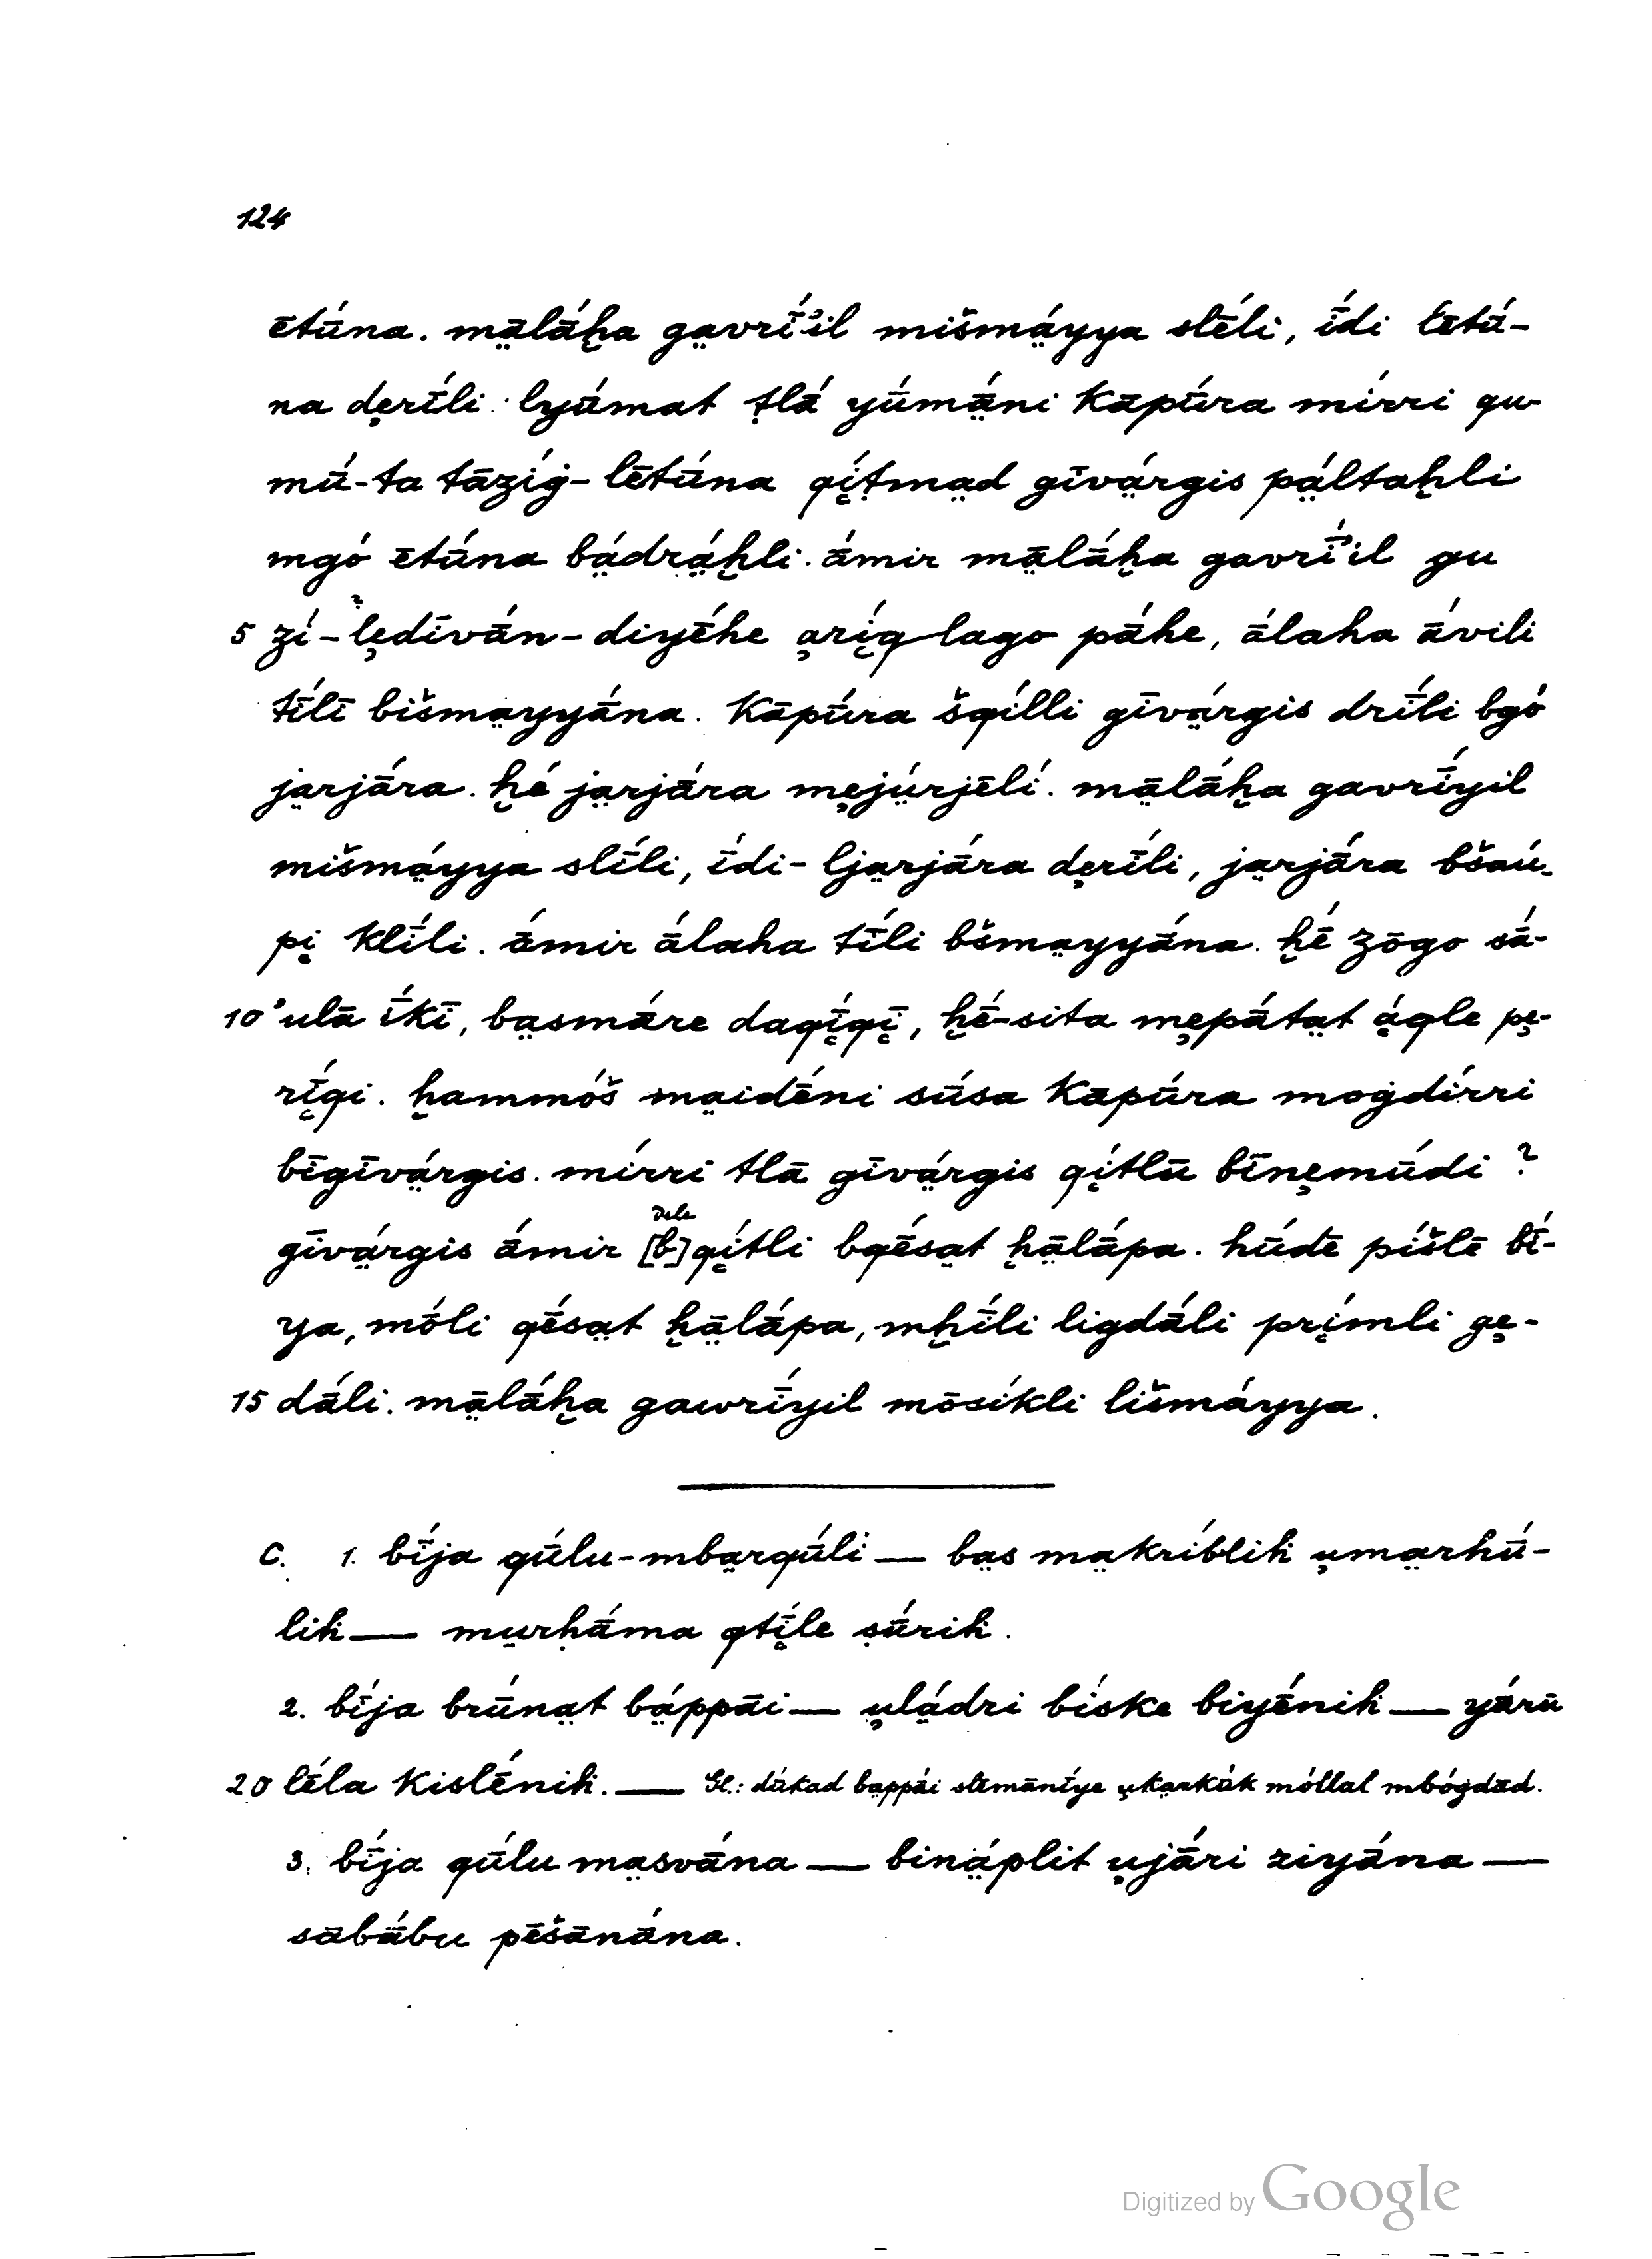 124
ētū́na. mạ̈̄lā́ḫa gạvrī́ʾil mišmạ́yya slḗli, ī́di lētū́-
na dẹrī́li. lyū́mat ṭlā́ yū́mạ̄ni kāpū́ra mírri qu-
mū́-ta tāzíġ-lētū́na qị́ṭmạd gīvạ́rgis pạ́ltaḫli
mgó ētū́na bạ́drạḫli. ā́mir mạ̄lā́ḫa gavrī́ʾil gu
5 zí-lẹdīvā́n-diyḗhe ạrị́q lago pā́he, ā́laha ā́vili
tī́lī bišmạyyā́na. kāpū́ra šqílli gīvạ́rgis drī́li bgó
jạrjā́ra. ḫḗ jạrjā́ra mẹjúrjēlí. mạ̄lā́ḫa gavrī́yil
mišmạ́yya slī́li, ī́di-ljạrjā́ra dẹrī́li, jạrjā́ra bšaú-
pị klī́li. ā́mir ā́laha tī́li bšmạyyā́na. ḫḗ zōgo sā́-
10 ʾulā ī́kī, bạsmā́re daqī́qị, ḫḗ-sita mẹpā́tạt ạ́qle pẹ-
rī́qi. ḫammṓš mạidḗni sū́sa kāpū́ra moġdírri
bīgīvạ́rgis. mírri tlā gīvạ́rgis qị́tlū bīnẹmū́di?
dele
gīvạ́rgis ā́mir [b]qị́tli bqḗsạt ḫạ̄lā́pa. hūdē píšlē bī́-
ya, mṓli qḗsạt ḫạ̄lā́pa, mḫī́li ligdā́li prị́mli gẹ-
15 dā́li. mạ̄lā́ḫa gawrī́yil mōsíkli lišmáyya.
C. 1. bī́ja qū́lu-mbạrqū́li — bạs mạkríbliḫ ụmạrhū́-
liḫ — mụrḥā́ma qtị̄́le ṣū́riḫ.
2. bī́ja brū́nạt bạ́ppāi — ụlạ́dri bíske biyḗniḫ — yā́rū
20 lḗla kislḗniḫ. — Gl.: dūkad bạppāi slēmānī́ye ụkạrkū́k mṓllal mbóġdād.
3. bī́ja qū́lu mạsvā́na — bināplit ụjā́ri ziyā́na —
sābā́bu pēšānā́na.
Digitized by Google